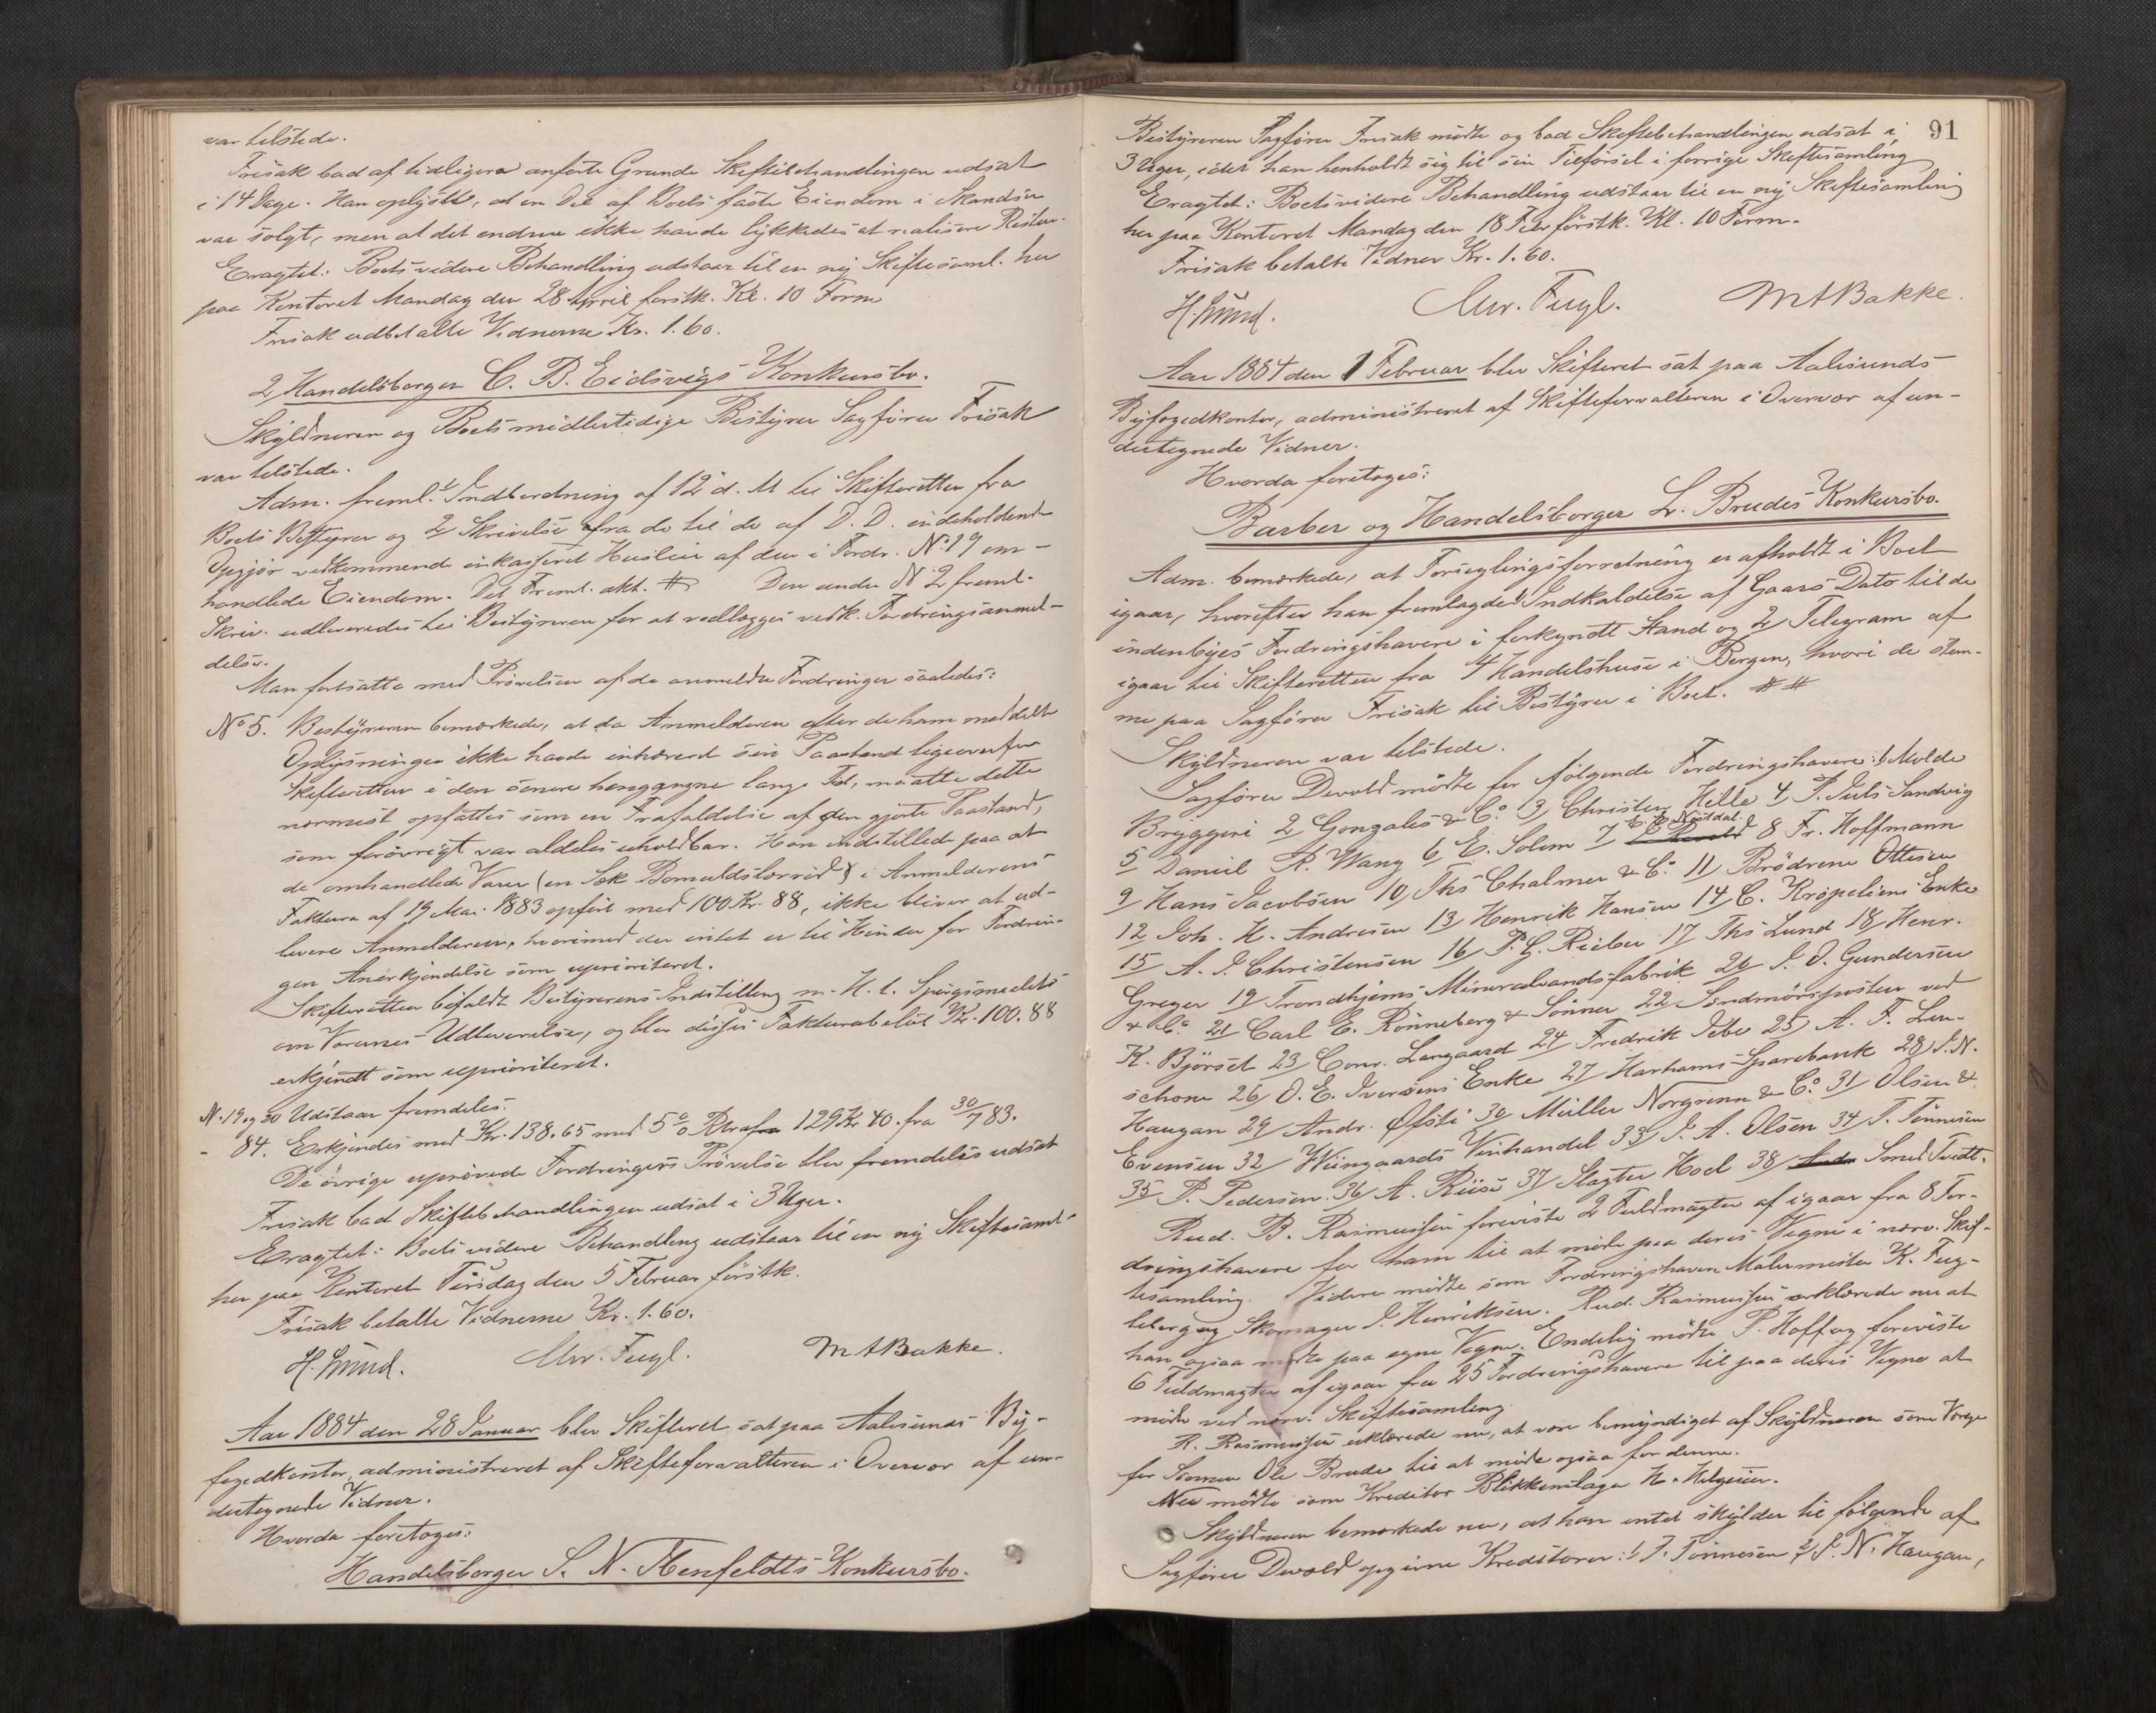 var tilstede.
Frisak bad af tidligere anførte Grunde Skiftebehandlingen udsat
i 14 Dage. Han oplyste, at en Del af Boets faste Eiendom i Skandsen
var solgt, men at det endnu ikke havde lykkedes at realisere Resten.
Eragtet: Boets videre Behandling udstaar til en ny Skiftesaml. her
paa Kontoret Mandag den 28 April førstk. Kl. 10 Form
Frisak udbetalte Vidnerne Kr. 1.60.
2, Handelsborger C. B. Eidsvigs Konkursbo.
Skyldneren og Boets midlertidige Bestyrer Sagfører Frisak
var tilstede.
Adm. freml. 1/ Indberetning af 12 d. M. til Skifteretten fra
Boets Bestyrer og 2/ Skrivelse fra do til do af D. D. indeholdende
Opgjør vedkommende inkasseret Husleie af den i Fordr. No 19 om-
handlede Eiendom. Det Freml. akt. # Den under N. 2 freml.
Skriv. udleveredes til Bestyreren for at vedlægges vedk. Fordringsanmel-
delse.
Man fortsatte med Prøvelsen af de anmeldte Fordringer saaledes:
No 5. Bestyreren bemærkede, at da Anmelderen efter de ham meddelte
Oplysninger ikke havde inhæreret sin Paastand ligeoverfor
Skifteretten i den senere hengangne lange Tid, maatte dette
nærmest opfattes som en Frafaldelse af den gjorte Paastand,
som forøvrigt var aldeles uholdbar. Han indstillede paa at
de omhandlede Varer (en Sæk Bomuldstørrid) i Anmelderens
Faktura af 19 Mai 1883 opført med 100 Kr. 88, ikke bliver at ud-
levere Anmelderen, hvorimod der intet er til Hinder for Fordrin-
gens Anerkjendelse som uprioriteret.
Skifteretten bifaldt Bestyrerens Indstilling m. H. t. Spørgsmaalet
om Varernes Udleverelse, og blev disses Fakturabeløb Kr. 100.88
erkjendt som uprioriteret.
N. 19 og 20 Udstaar fremdeles.
- 84. Erkjendes med Kr. 138.65 med 5 % Rtr af 129 Kr 40. fra 30/7 83.
De øvrige uprøvede Fordringers Prøvelse blev fremdeles udsat
Frisak bad Skiftebehandlingen udsat i 3 Uger.
Eragtet: Boets videre Behandling udstaar til en ny Skiftesaml.
her paa Kontoret Tirsdag den 5 Februar førstk.
Frisak betalte Vidnerne Kr. 1.60.
Chr. Fugl. M A Bakke.
Aar 1884 den 28 Januar blev Skifteret sat paa Aalesunds By-
fogedkontor, administreret af Skifteforvalteren i Overvær af un-
dertegnede Vidner.
Hvorda foretoges:
Handelsborger S. N. Konkursbo.
91
Bestyreren Sagfører Frisak mødte og bad Skiftebehandlingen udsat i
3 Uger, idet han henholdt sig til sin Tilførsel i forrige Skiftesamling
Eragtet: Boets videre Behandling udstaar til en ny Skiftesamling
her paa Kontoret Mandag den 18 Febr førstk. Kl. 10 Form.
Frisak betalte Vidner Kr. 1.60.
Chr. Fugl. M A Bakke.
Aar 1884 den 1 Februar blev Skifteret sat paa Aalesunds
Byfogedkontor, administreret af Skifteforvalteren i Overvær af un-
dertegnede Vidner.
Hvorda foretoges:
Barber og Handelsborger L. Brudes Konkursbo.
Adm. bemærkede, at Forseglingsforretning er afholdt i Boet
igaar, hvorefter han fremlagde 1/ Indkaldelse af Gaars Dato til de
indenbyes Fordringshavere i forkyndt Stand og 2/ Telegram af
igaar til Skifteretten fra 4 Handelshuse i Bergen, hvori de stem-
me paa Sagfører Frisak til Bestyrer i Boet. # #
Skyldneren var tilstede.
Sagfører Devold mødte for følgende Fordringshavere: 1/ Molde
Bryggeri 2/ Gonzales & Co. 3/ Christen Helle 4/ P. Juls Sandvig
5/ Daniel R. Wang 6/ E. Solem 7/ 8/ Fr. Hoffmann
9/ Hans Jacobsen 10/ Ths Chalmer & Co. 11/ Brødrene Ottesen
12/ Joh. H. Andresen 13/ Henrik Hansen 14/ C. Krøpeliens Enke
15/ A. J. Christensen 16/ P. G. Rieber 17/ Ths Lund 18/ Henr.
Greger 19/ Trondhjems Mineralvandsfabrik 20/ J. O. Gundersen
& Co. 21/ Carl E. Rønneberg & Sønner 22/ Søndmørsposten ved
K. Bjørset 23/ Conr. Langaard 24/ Fredrik Jebe 25/ A. F. Leu-
schone 26/ O. E. Iversens Enke 27/ Harhams Sparebank 28/ J. N.
Haugan 29/ Andr. Øfsti 30/ Müller Norgrenn & Co. 31/ Olsen &
Evensen 32/ Wiingaards Vinhandel 33/ J. A. Olsen 34/ T. Tønnesen
35/ P. Pedersen. 36/ A. Riise 37/ Slagter Hoel 38/ Smed Tvedt.
Rud. B. Rasmussen foreviste 2 Fuldmagter af igaar fra 8 For-
dringshavere for ham til at møde paa deres Vegne i nærv. Skif-
tesamling. Videre mødte som Fordringshaver Malermester K. Fug-
lelerg og Skomager J. Henriksen. Rud. Rasmussen erklærede nu at
han ogsaa mødte paa egne Vegne. Endelig mødte P. Hoff og foreviste
6 Fuldmagter af igaar fra 25 Fordringshavere til paa deres Vegne at
møde ved nærv. Skiftesamling.
R. Rasmussen erklærede nu, at være bemyndiget af Skyldneren som Værge
for Sønnen Ole Brude til at møde ogsaa for denne.
Nu mødte som Kreditor Blikkenslager H. Helgesen.
Skyldneren bemærkede nu, at han intet skylder til følgende af
Sagfører Devold opgivne Kreditorer: 1/ T. Tønnesen 2/ J. N. Haugan,